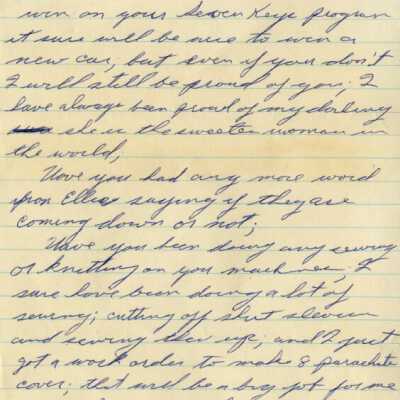 win on your Seven Keys program
it sure will be nice to win a
new car, but even if you don't
I will still be proud of you; I
have always been proud of my darling
she is the sweetest woman in
the world;
Have you had any more word
from Ellie saying if they are
coming down or not;
Have you been doing any sewing
or knitting on your machines. I
sure have been doing a lot of
sewing; cutting off shirt sleeves
and sewing them up; and I just
got a work order to make 8 parachute
cover; that will be a big job for me